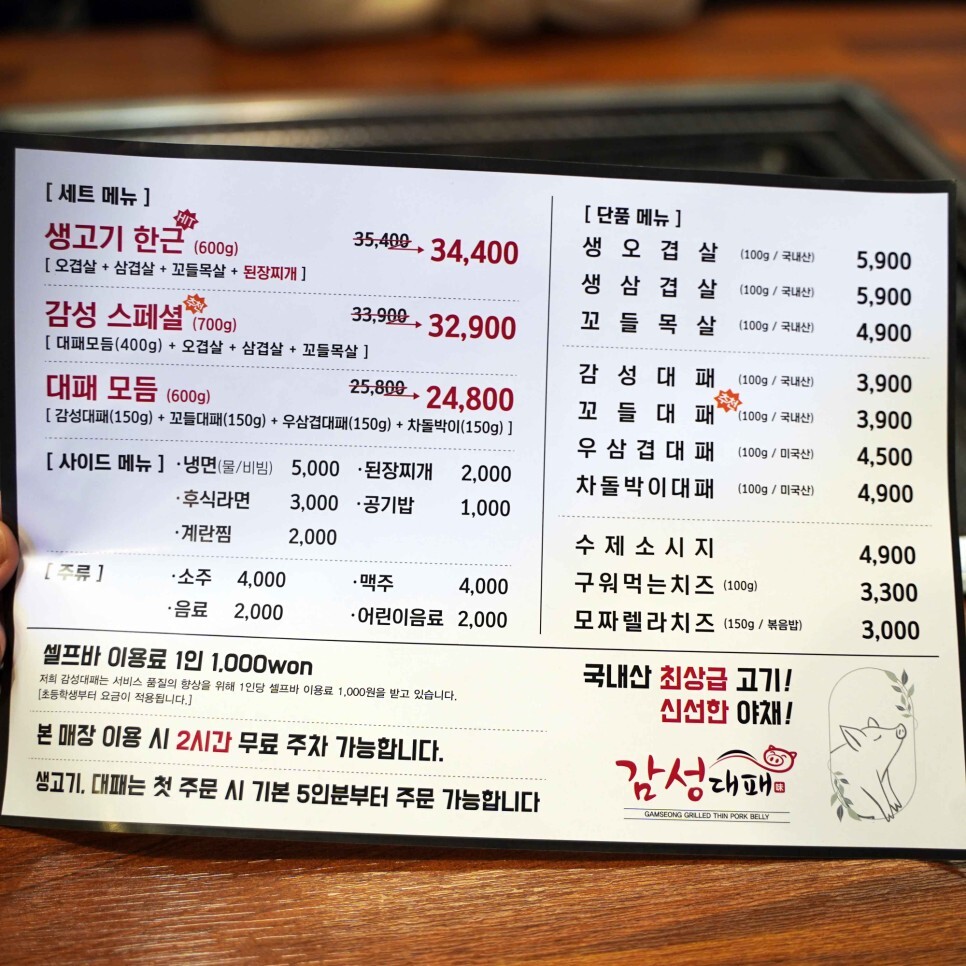 [ 세트 메뉴 ]
생고기 한근 (600g) HIT 35,400 34,400
[ 오겹살 + 삼겹살 + 꼬들목살 + 된장찌개 ]
감성 스페셜 (700g) 추천 33,900 32,900
[ 대패모듬(400g) + 오겹살 + 삼겹살 + 꼬들목살 ]
대패 모듬 (600g) 25,800 24,800
[ 감성대패(150g) + 꼬들대패(150g) + 우삼겹대패(150g) + 차돌박이(150g) ]
[ 사이드 메뉴 ] ·냉면(물/비빔) 5,000 ·된장찌개 2,000
·후식라면 3,000 ·공기밥 1,000
·계란찜 2,000
[ 주류 ] ·소주 4,000 ·맥주 4,000
·음료 2,000 ·어린이음료 2,000
[ 단품 메뉴 ]
생오겹살 (100g / 국내산) 5,900
생삼겹살 (100g / 국내산) 5,900
꼬들목살 (100g / 국내산) 4,900
감성대패 (100g / 국내산) 3,900
꼬들대패 추천 (100g / 국내산) 3,900
우삼겹대패 (100g / 미국산) 4,500
차돌박이대패 (100g / 미국산) 4,900
수제소시지 4,900
구워먹는치즈 (100g) 3,300
모짜렐라치즈 (150g / 볶음밥) 3,000
셀프바 이용료 1인 1,000won
저희 감성대패는 서비스 품질의 향상을 위해 1인당 셀프바 이용료 1,000원을 받고 있습니다.
[초등학생부터 요금이 적용됩니다.]
본 매장 이용 시 2시간 무료 주차 가능합니다.
생고기, 대패는 첫 주문 시 기본 5인분부터 주문 가능합니다
국내산 최상급 고기!
신선한 야채!
감성대패 味
GAMSEONG GRILLED THIN PORK BELLY